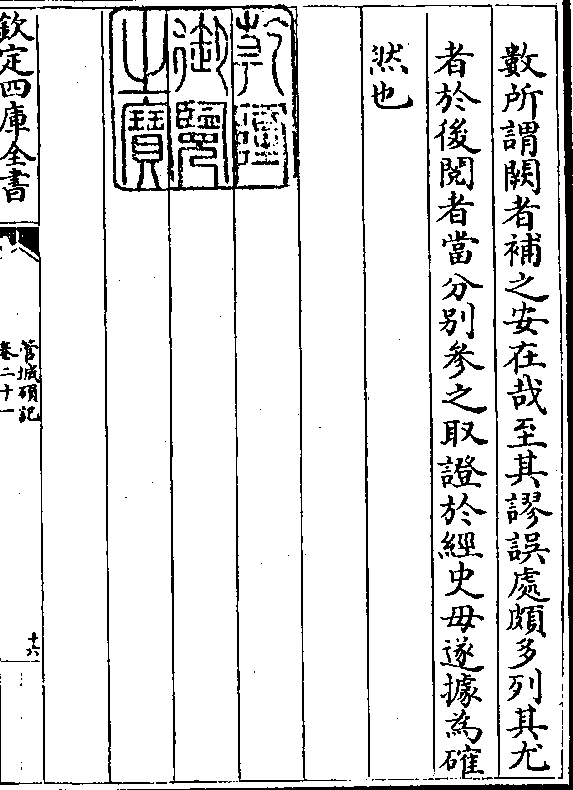 數所謂闕者補之安在哉至其謬誤處頗多列其尤
者於後閱者當分別參之取證於經史毋遂據為確
然也
乾隆
御覽
之寶
欽定四庫全書
管城碩記
卷二十一
十六